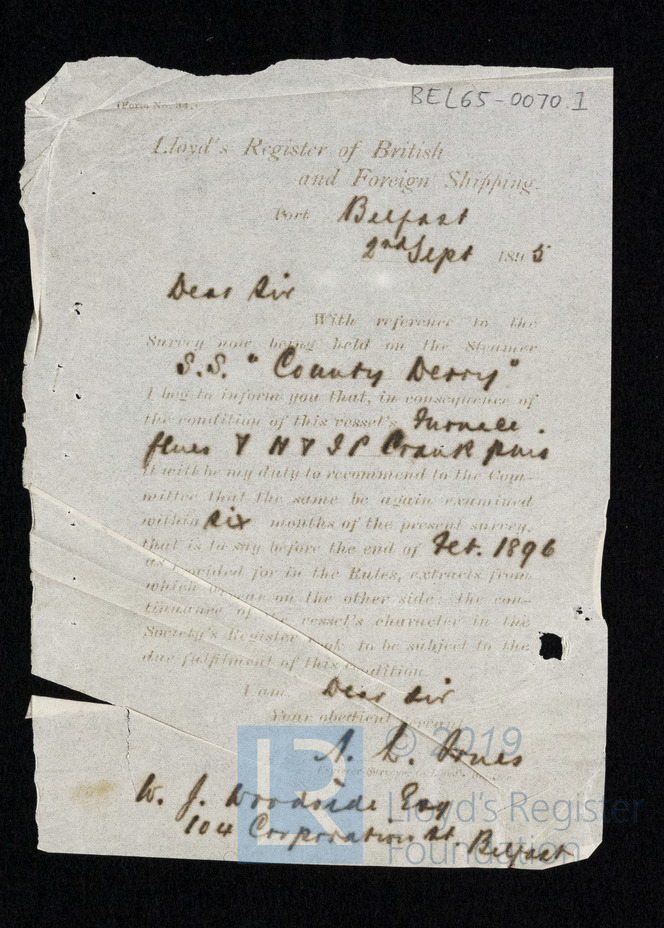 (Form No. 34.)
BEL65-0070.1
Lloyd's Register of British
and Foreign Shipping.
Port Belfast
2nd Sept 1895
Dear Sir
With reference to the
Survey now being held on the Steamer
S.S. "County Derry"
I beg to inform you that, in consequence of
the condition of this vessel's Furnace
flues & H & I P Crank pins
it will be my duty to recommend to the Com-
mittee that the same be again examined
within six months of the present survey,
that is to say before the end of Feb. 1896
as provided for in the Rules, extracts from
which appear on the other side; the con-
tinuance of the vessel's character in the
Society's Register Book to be subject to the
due fulfilment of this Condition
I am Dear Sir
Your obedient Servant
Jones
Surveyor to Lloyd's
W. J. Woodside Esq
104 Corporation St. Belfast
LR
© 2019
Lloyd's Register
Foundation